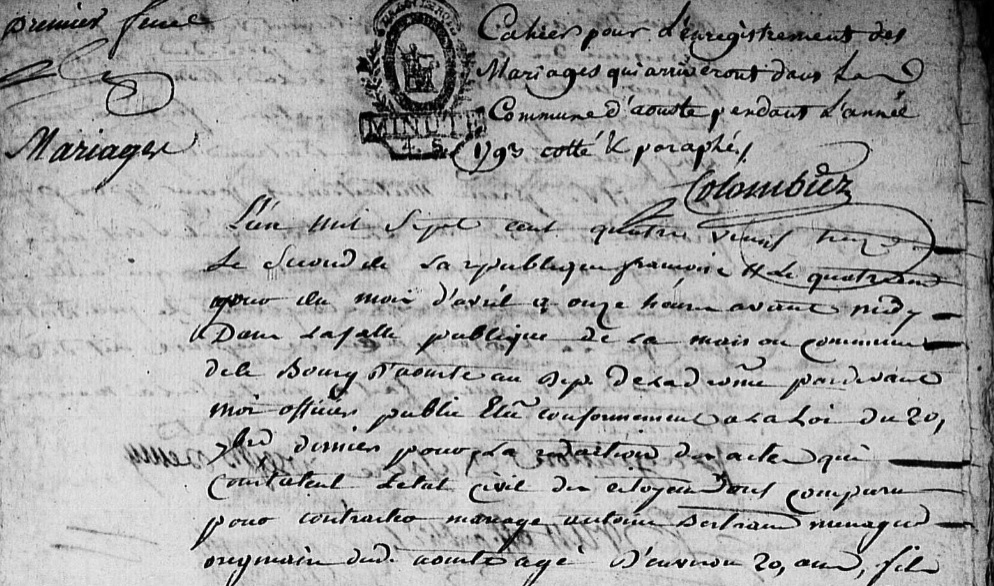 premier feuillet
Mariages
MINUTE
4. S.
Cahier pour L'enregistrement des
Mariages qui arriveront dans La
Commune d'aouste pendant L'année
1793 cotté & paraphé
Colombiez
L'an mil Sept cent quatre vingt treize
Le Second de La republique francoise & Le
jour du mois d'avril a onze heures avant midy
Dans La salle publique de La maison commune
de Bourg d'aouste au dep. de La drome pardevant
moi officier public Elu conformement a La Loi du 20,
7bre dernier pour La redaction des actes qui
Constatent L'etat civil des citoyens Sont comparu
pour contracter mariage antoine Bertrand menager
originaire dud. aouste agé d'environ 20, ans, fils